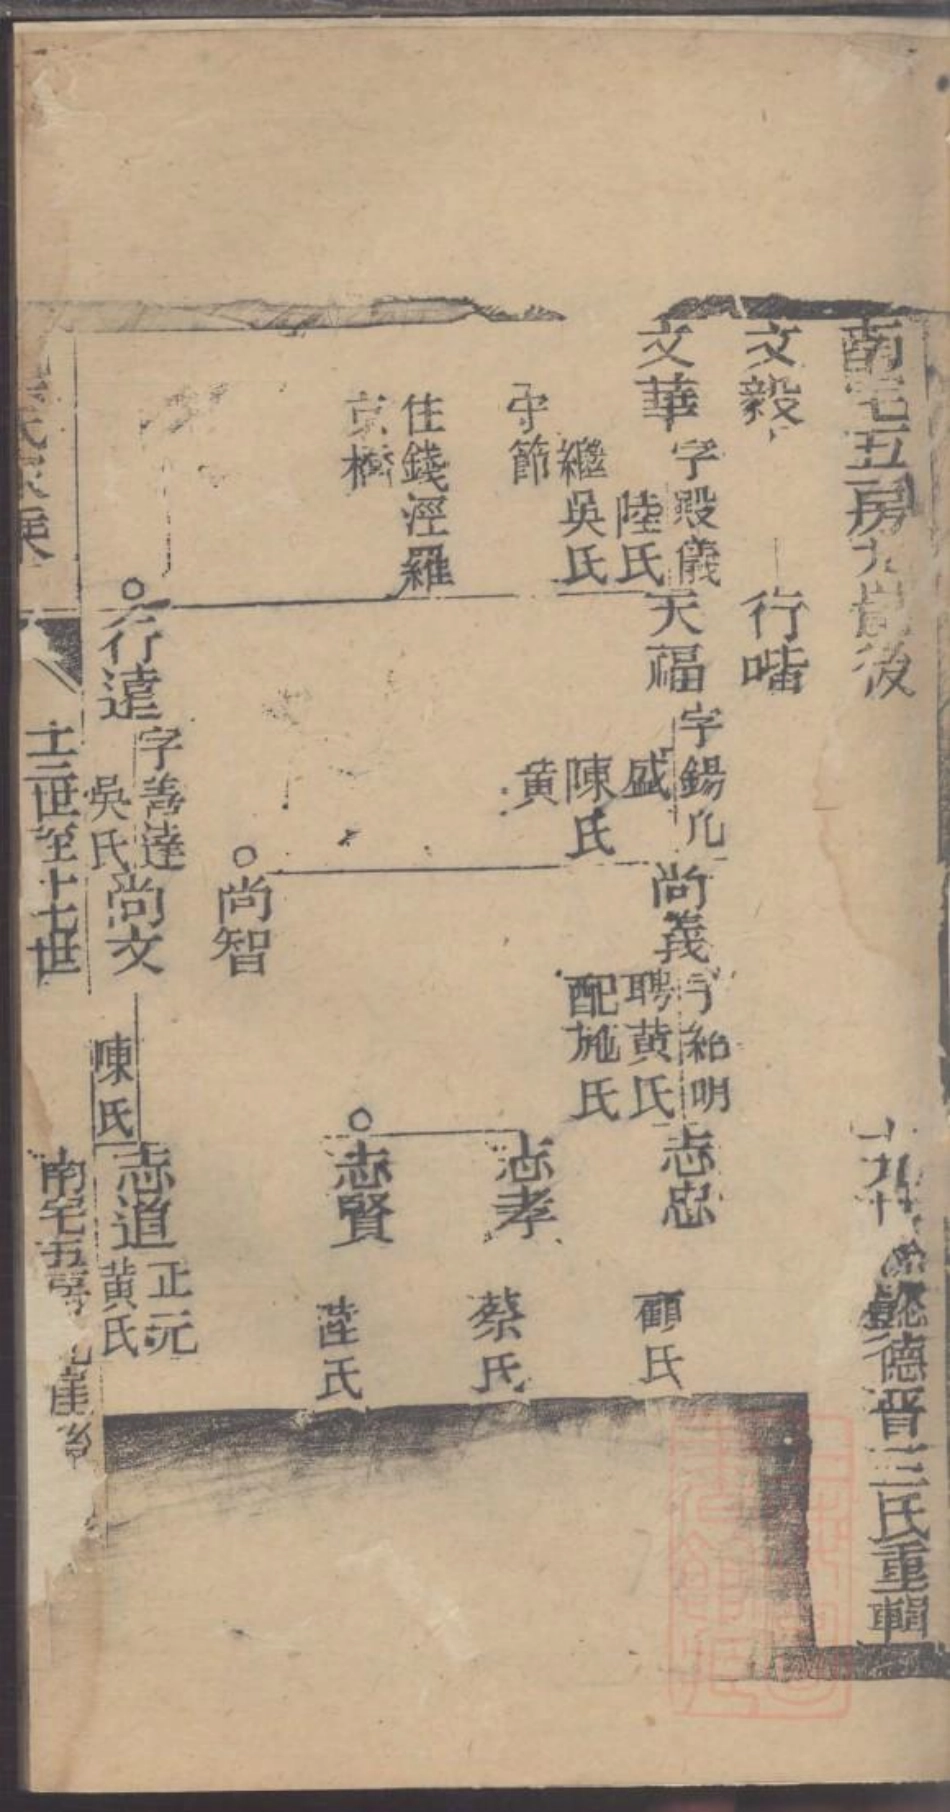 南宅五房九崑後
德晋三氏重輯
文毅
行喈
文華
字殿儀
陸氏
繼吳氏
守節
住錢涇羅
京橋
天福
字錫九
盛
陳氏
黄
尚義
字紹明
聘黄氏
配施氏
志忠
顧氏
志孝
蔡氏
志賢
陸氏
尚智
行達
字善達
吳氏
尚文
陳氏
志道
正元
黄氏
氏家乘
十三世至十七世
南宅五房